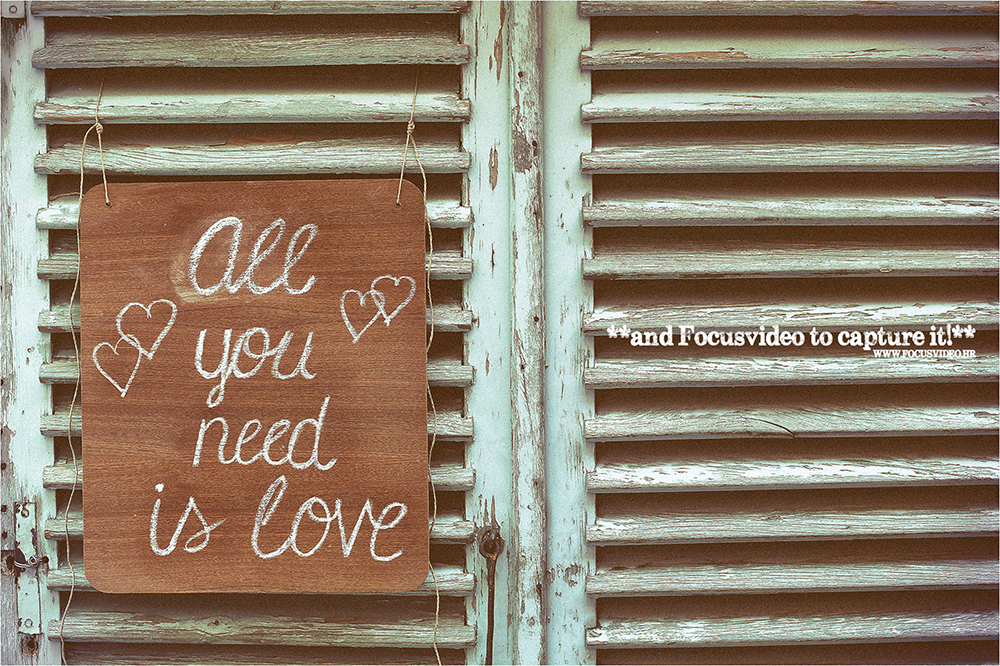 All
you
need
is love
**and Focusvideo to capture it!**
WWW.FOCUSVIDEO.HR